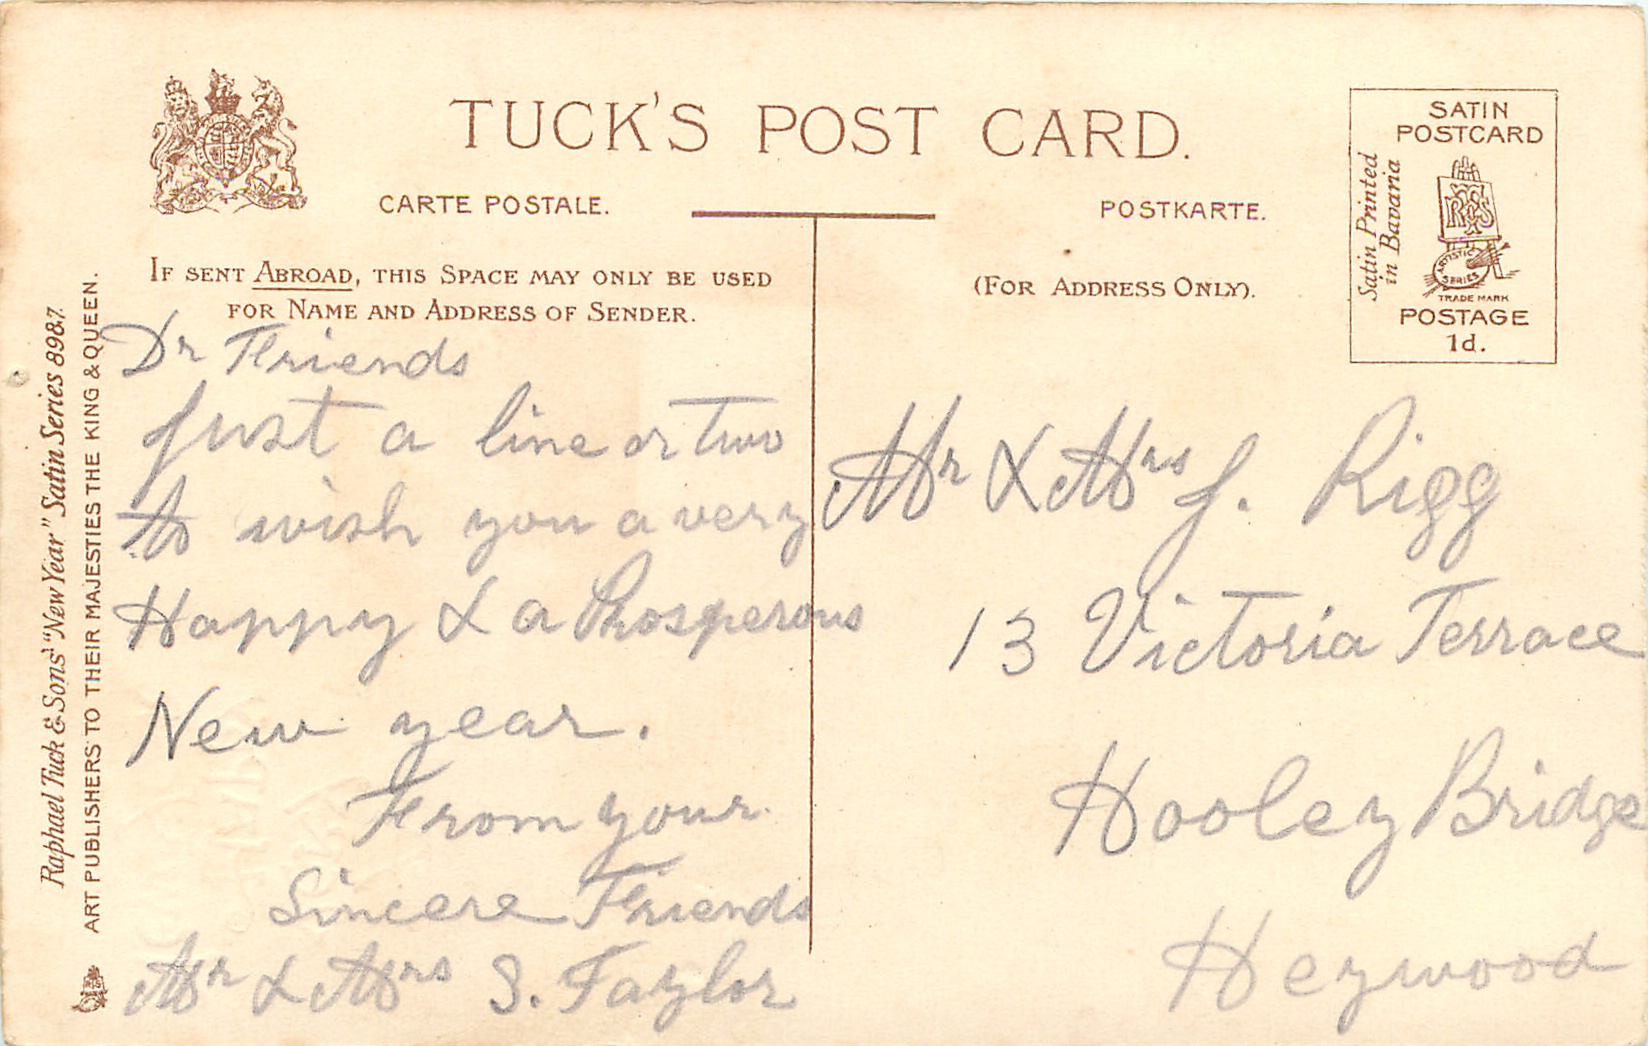 TUCK'S POST CARD.
CARTE POSTALE.
POSTKARTE.
IF SENT ABROAD, THIS SPACE MAY ONLY BE USED
FOR NAME AND ADDRESS OF SENDER.
(FOR ADDRESS ONLY).
SATIN
POSTCARD
Satin Printed
in Bavaria
RTS
ARTISTIC
SERIES
TRADE MARK
POSTAGE
1d.
Raphael Tuck & Sons' "New Year" Satin Series 8987.
ART PUBLISHERS TO THEIR MAJESTIES THE KING & QUEEN.
Dr Friends
Just a line or two
to wish you a very
Happy & a Prosperous
New year.
From your
Sincere Friends
Mr & Mrs S. Taylor
Mr & Mrs J. Rigg
13 Victoria Terrace
Hooley Bridge
Heywood